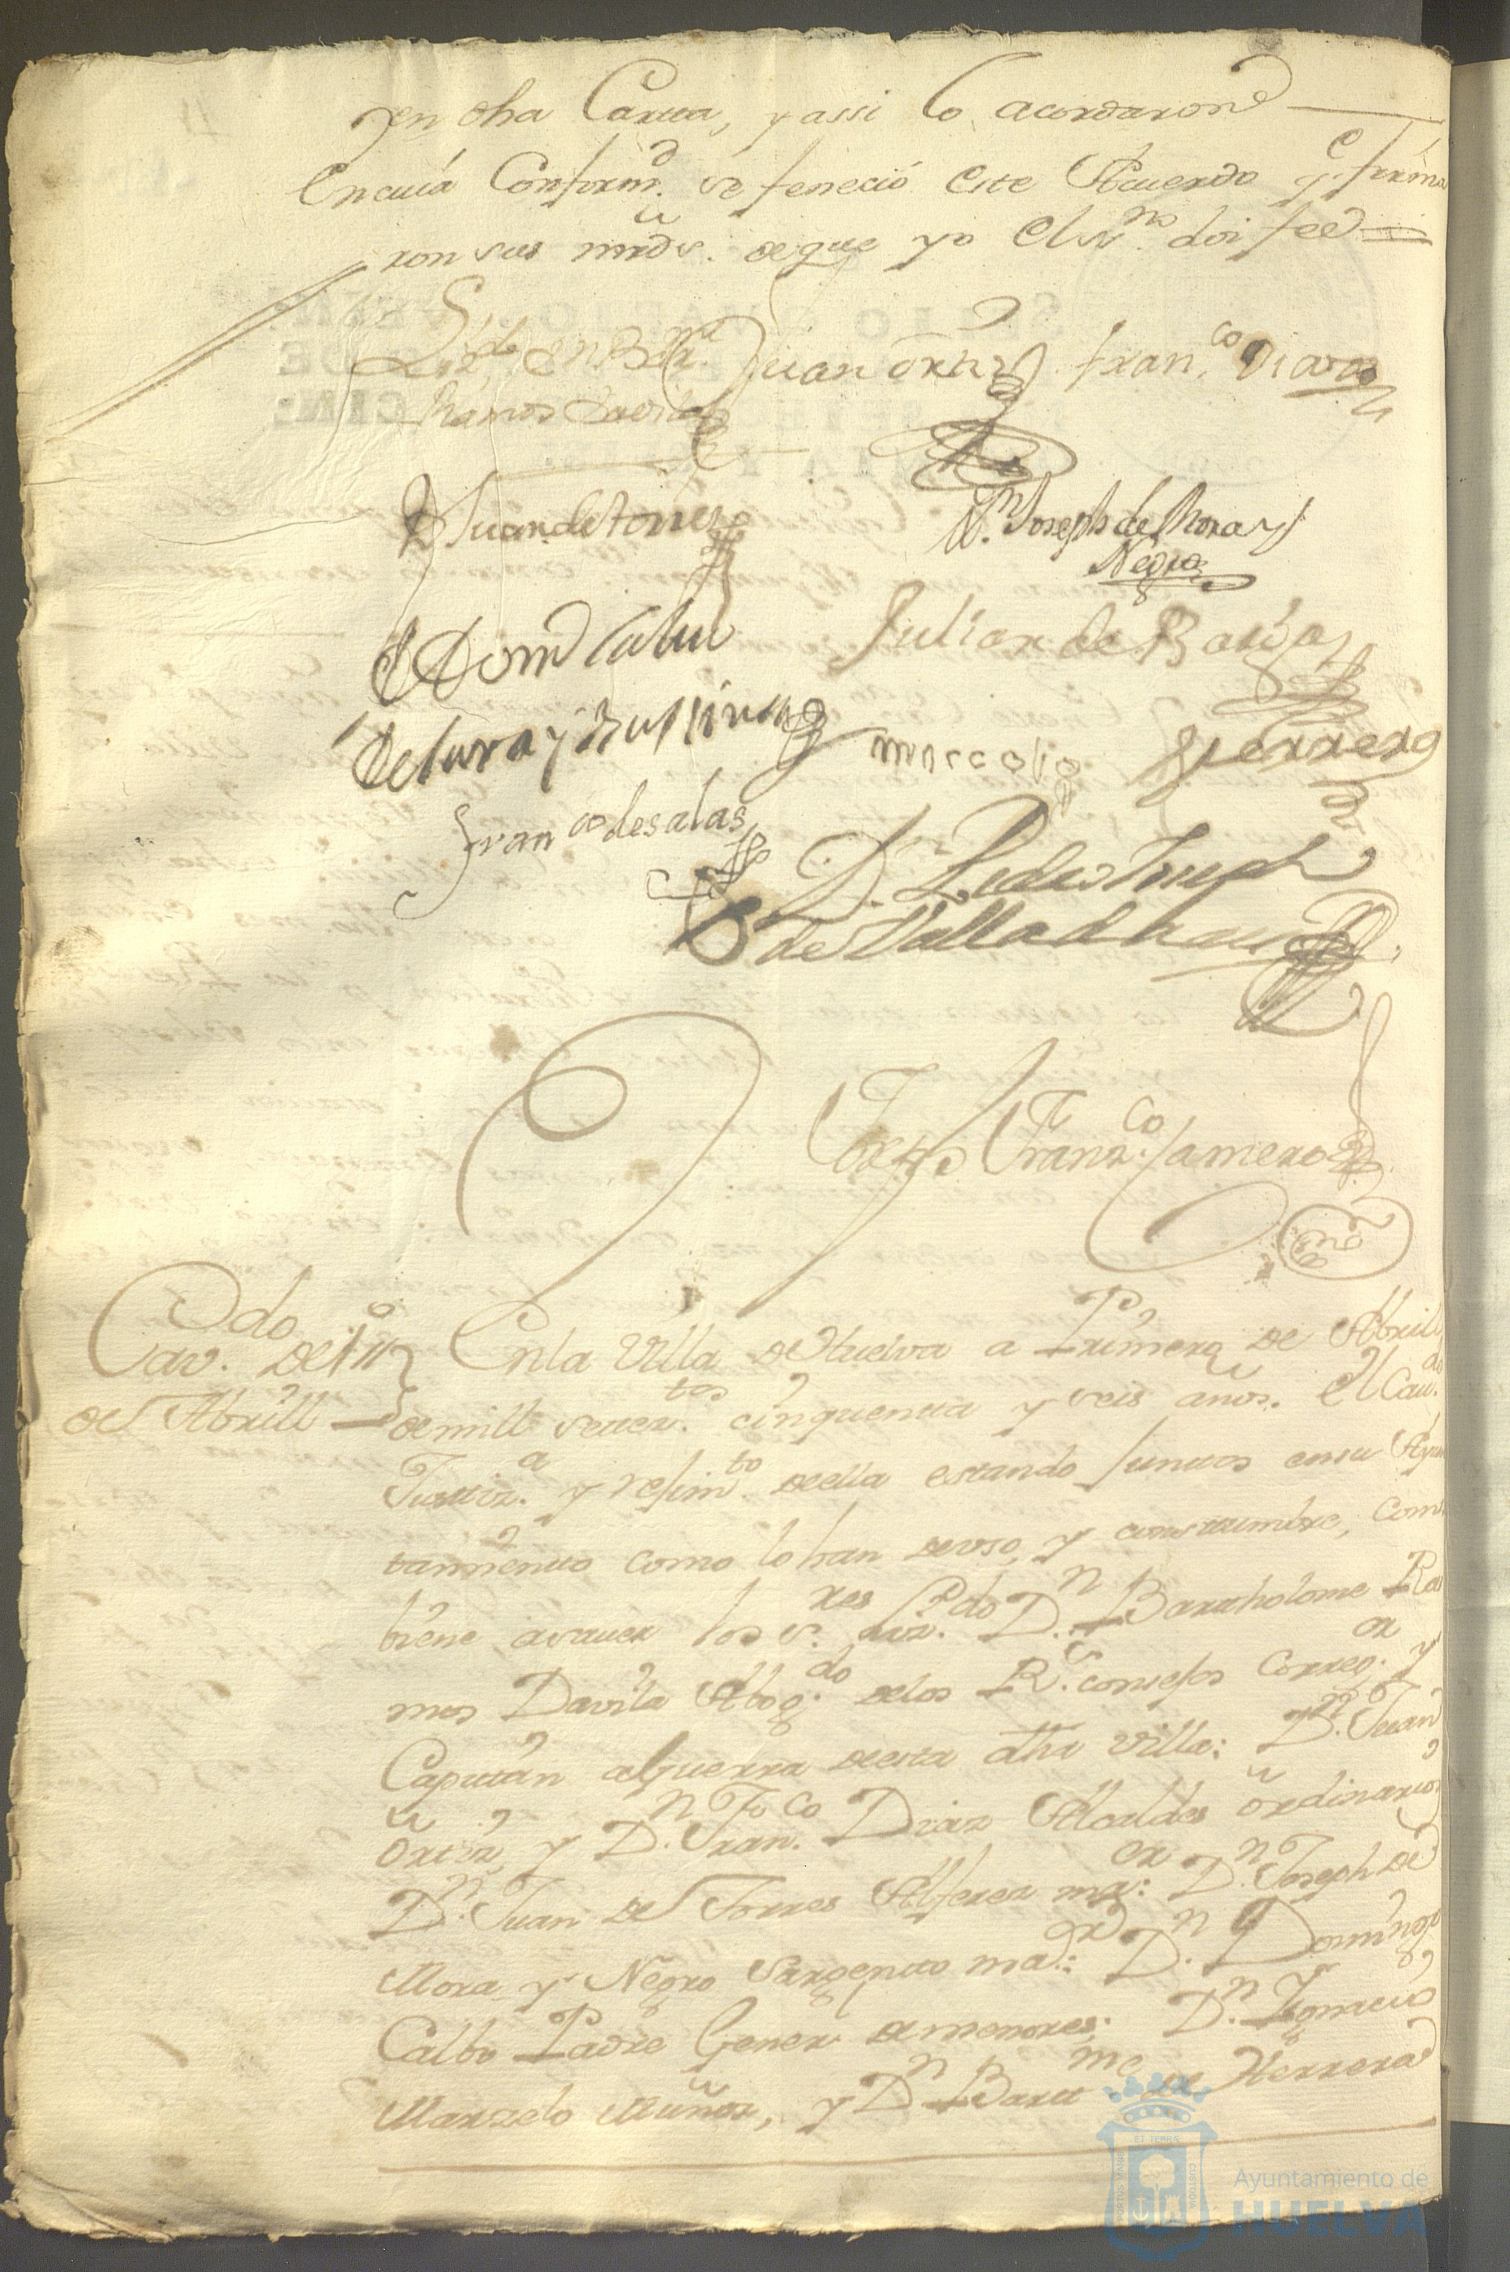 en dha Carta, y assi lo acordaron
En cuia Conformd. se feneció este Acuerdo q. firma
ron sus mrds. de que yo el ss.no doi fee
Lizdo. Dn. Barme.
Ramos Davila
Juan Ortiz
Fran.co Diaz
Dn Juan de Torres
Dn. Joseph de Mora y
Negro
Dn Domo Calvo
Julian de Barga
De Lara y
Marcelo
Herrera
Fran co de salas
Dn. Pedro Joseph
de Valladhares
Franz.co Jamero
Cav.do de 1o
de Abrill
En la Villa de Huelva a Primero de Abrill
de mill setez.tos cinquenta y seis años. El Cav.do
Justiz.a y rejim.to de ella estando juntos en su Ayun
tamiento como lo han de uso, y constumbre, Com
biene asaver los s.res Liz.do D.n Bartholome Ra
mos Davila Abog.do de los R.s consejos Correg.or y
Capitan a Guerra de esta dha Villa: D.n Juan
Ortiz, y D.n Fran.co Diaz Alcaldes ordinarios
D.n Juan de Torres Alferez ma.or D.n Joseph de
Mora y Negro Sargento ma.or: D.n Domingo
Calbo Padre Gener. de menores: D.n Ygnacio
Marzelo Muñoz, y D.n Bart.me de Herrera
Ayuntamiento de
HUELVA